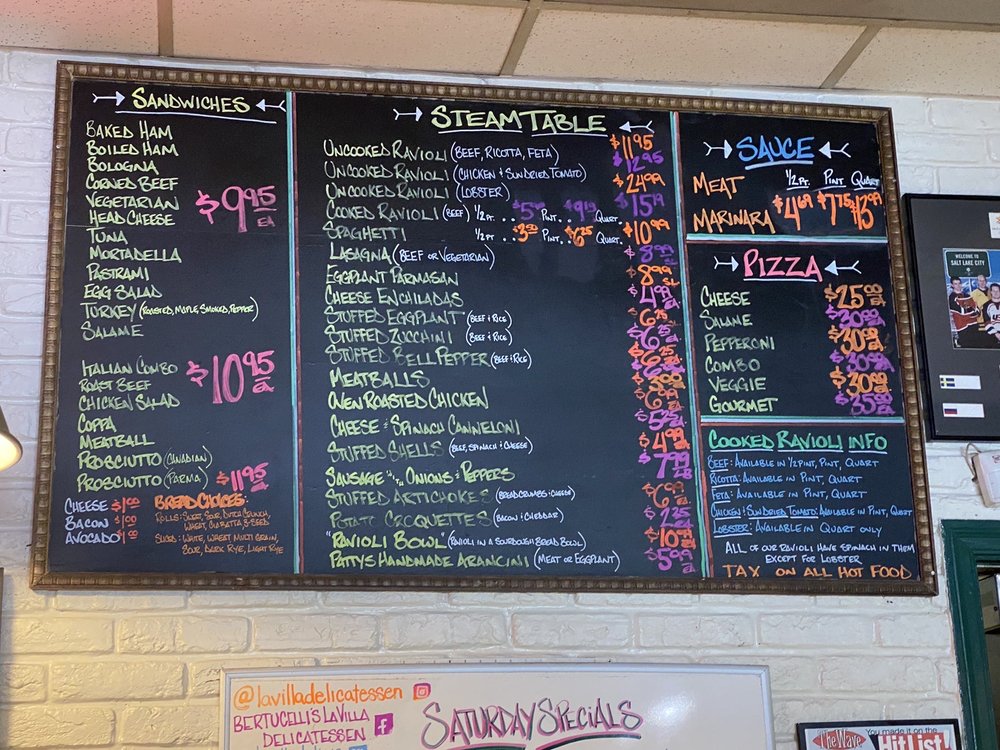 SANDWICHES
BAKED HAM
BOILED HAM
BOLOGNA
CORNED BEEF
VEGETARIAN
HEAD CHEESE
TUNA
MORTADELLA
PASTRAMI
EGG SALAD
TURKEY (ROASTED, MAPLE, SMOKED, PEPPER)
SALAME
$9.95 EA
ITALIAN COMBO
ROAST BEEF
CHICKEN SALAD
COPPA
MEATBALL
PROSCIUTTO (CANADIAN)
$10.95 EA
PROSCIUTTO (PARMA) $11.95
CHEESE $1.00
BACON $1.00
AVOCADO $1.00
BREAD CHOICES:
ROLLS: SWEET, SOUR, DUTCH CRUNCH,
WHEAT, CIAPATTA, 3-SEED
SLICED: WHITE, WHEAT, MULTI GRAIN,
SOUR, DARK RYE, LIGHT RYE
STEAM TABLE
UNCOOKED RAVIOLI (BEEF, RICOTTA, FETA) $11.95
UNCOOKED RAVIOLI (CHICKEN & SUNDRIED TOMATO) $12.95
UNCOOKED RAVIOLI (LOBSTER) $24.99
COOKED RAVIOLI (BEEF) 1/2 PT. .. PINT.. $9.19 QUART.. $15.19
SPAGHETTI 1/2 PT ..$3.50 PINT.. $6.25 QUART.. $10.99
LASAGNA (BEEF OR VEGETARIAN) $8.99
EGGPLANT PARMASAN $8.99 SL
CHEESE ENCHILADAS $4.99 EA
STUFFED EGGPLANT (BEEF & RICE) $6.25
STUFFED ZUCCHINI (BEEF & RICE) $6.25
STUFFED BELL PEPPER (BEEF & RICE) $6.25
MEATBALLS $3.00
OVEN ROASTED CHICKEN $6.99
CHEESE & SPINACH CANNELONI $5.75
STUFFED SHELLS (BEEF, SPINACH & CHEESE) $4.99
SAUSAGE W/ ONIONS & PEPPERS $7.99 LB
STUFFED ARTICHOKES (BREADCRUMBS & CHEESE)
POTATO CROQUETTES (BACON & CHEDDAR) $2.75
"RAVIOLI BOWL" (RAVIOLI IN A SOURDOUGH BREAD BOWL)
PATTYS HANDMADE ARANCINI (MEAT OR EGGPLANT) $5.95 EA
SAUCE
1/2 PT. PINT QUART
MEAT
MARINARA $4.69 $7.75 $13.99
PIZZA
CHEESE $25.00 EA
SALAME $30.00 EA
PEPPERONI $30.00 EA
COMBO $30.00 EA
VEGGIE $30.00 EA
GOURMET $35.00 EA
COOKED RAVIOLI INFO
BEEF: AVAILABLE IN 1/2 PINT, PINT, QUART
RICOTTA: AVAILABLE IN PINT, QUART
FETA: AVAILABLE IN PINT, QUART
CHICKEN & SUNDRIED TOMATO: AVAILABLE IN PINT, QUART
LOBSTER: AVAILABLE IN QUART ONLY
ALL OF OUR RAVIOLI HAVE SPINACH IN THEM
EXCEPT FOR LOBSTER
TAX ON ALL HOT FOOD
WELCOME TO
SALT LAKE CITY
@lavilladelicatessen
BERTUCELLI'S LA VILLA
DELICATESSEN
SATURDAY SPECIALS
The Wave
You made it on the
Hit List!